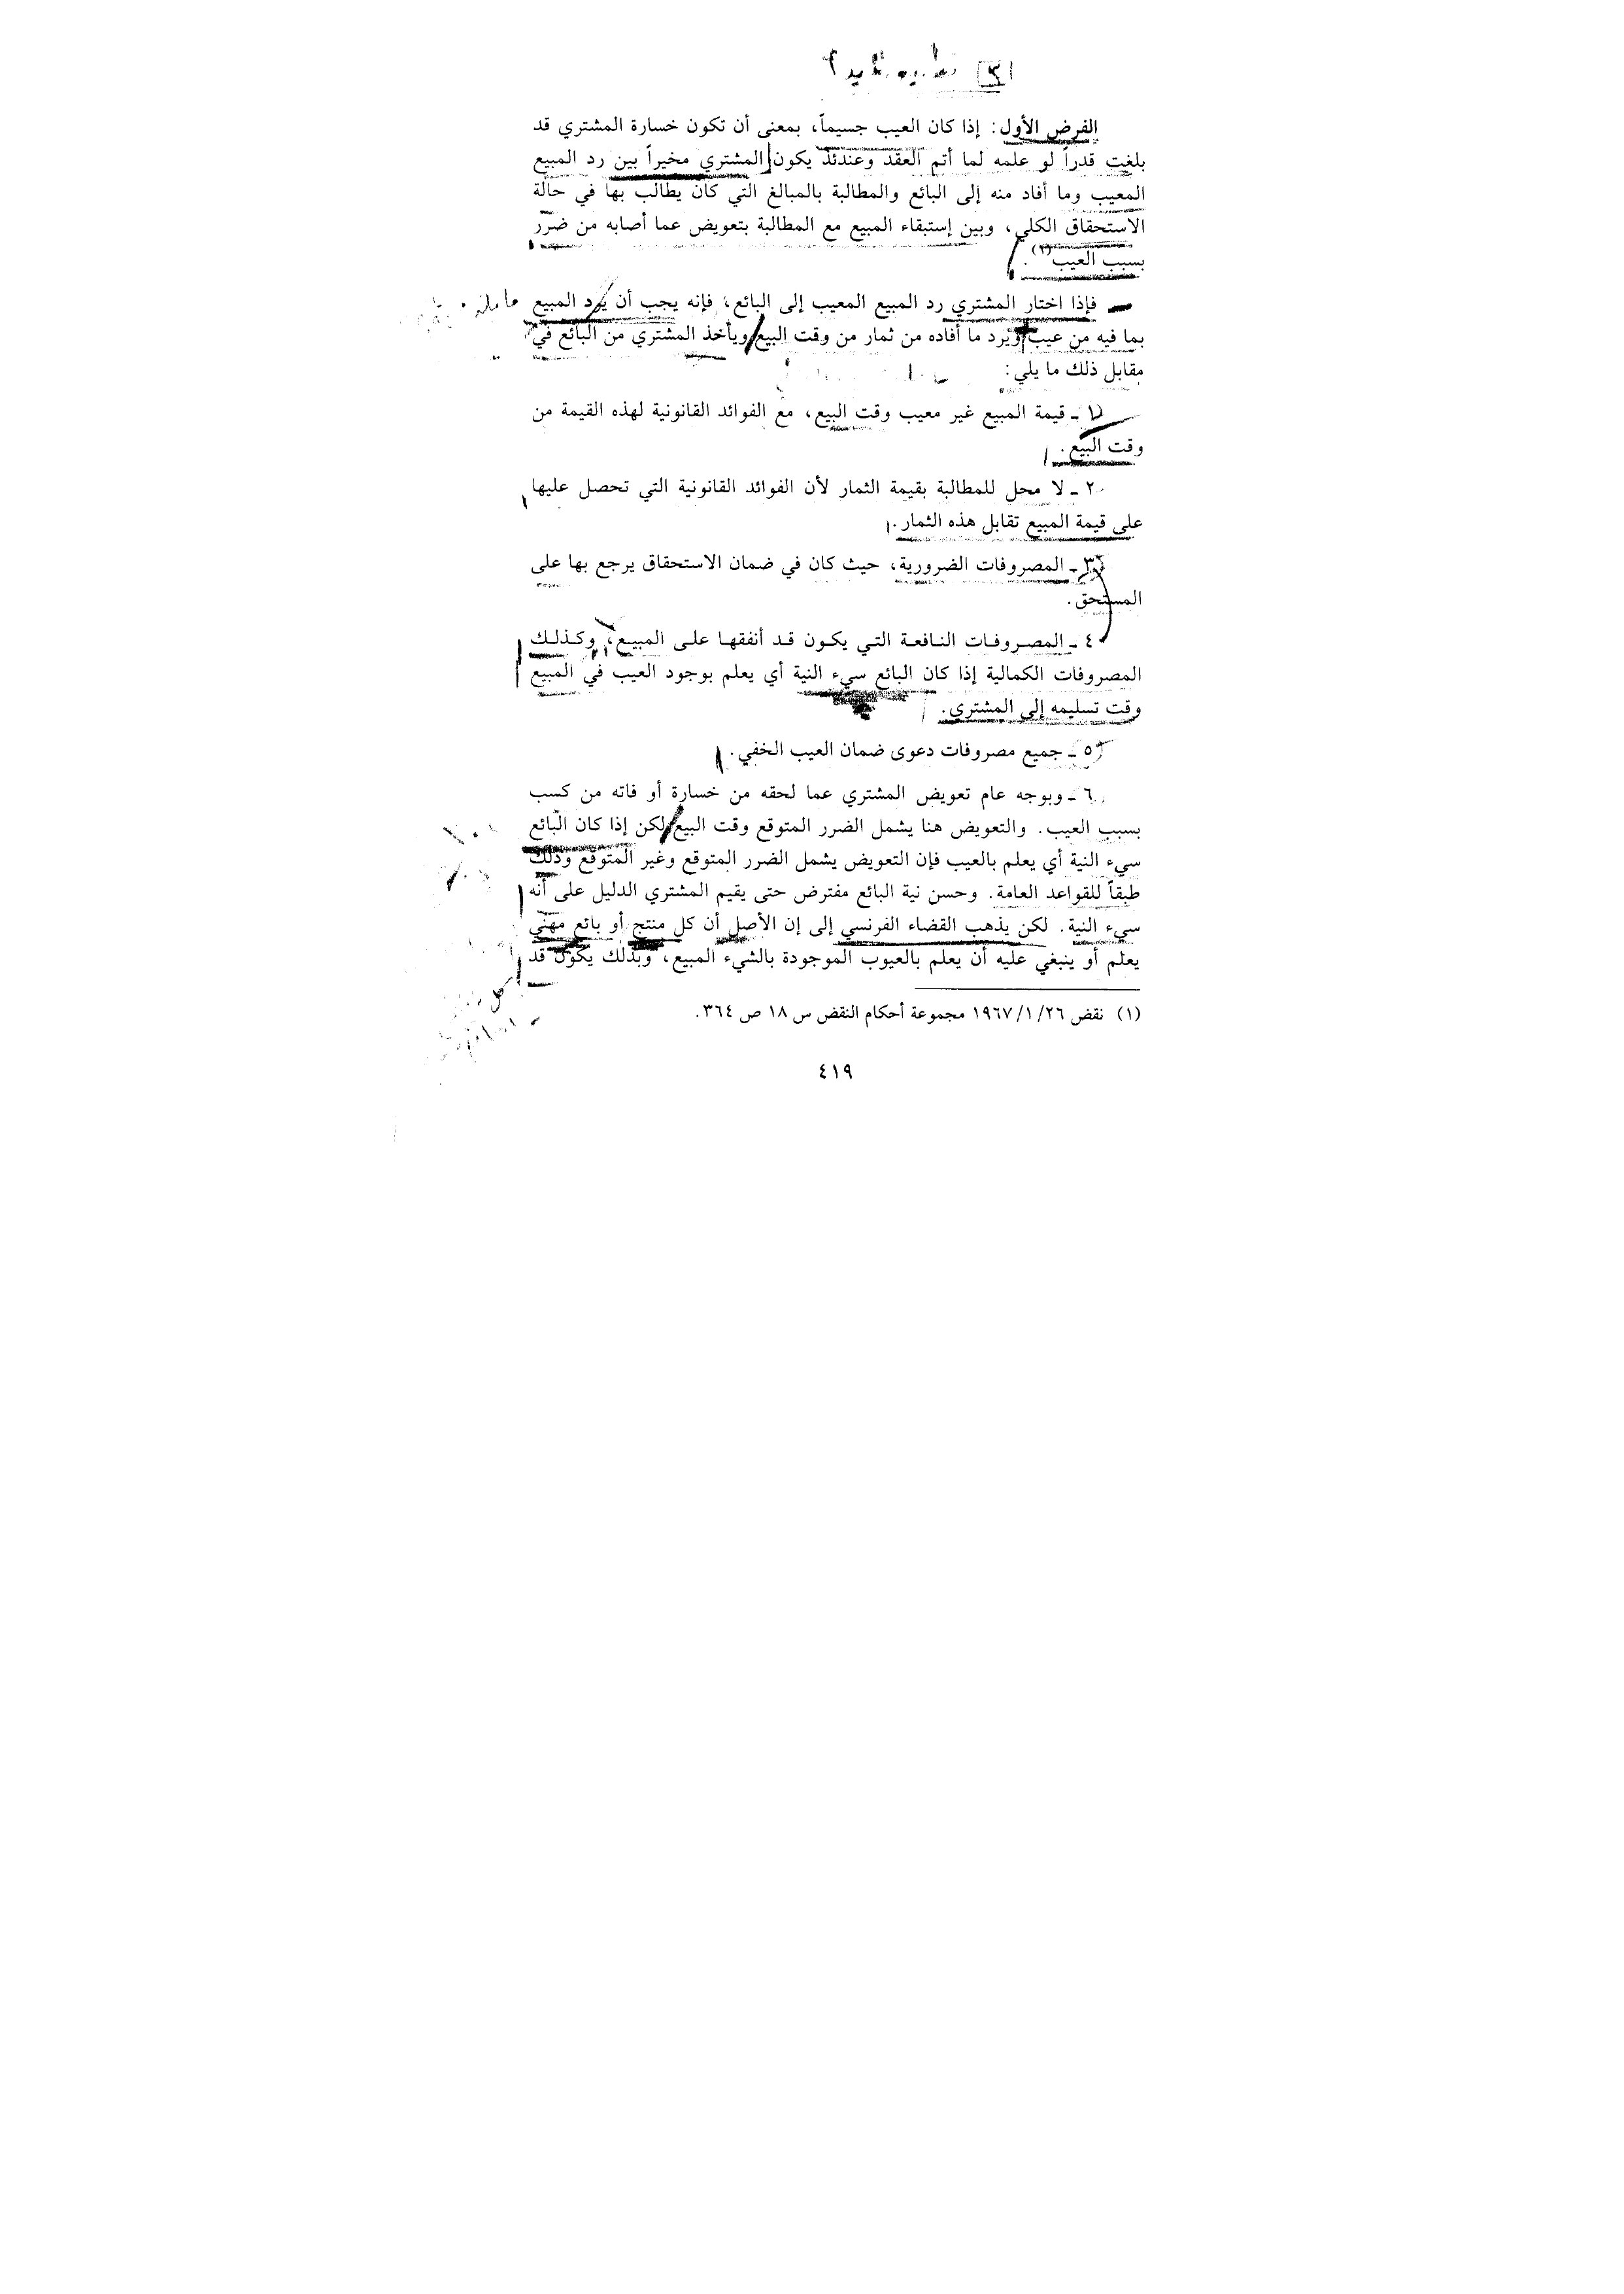 الفرض الأول: إذا كان العيب جسيماً، بمعنى أن تكون خسارة المشتري قد
بلغت قدراً لو علمه لما أتم العقد وعندئذ يكون المشتري مخيراً بين رد المبيع
المعيب وما أفاد منه إلى البائع والمطالبة بالمبالغ التي كان يطالب بها في حالة
الاستحقاق الكلي، وبين إستبقاء المبيع مع المطالبة بتعويض عما أصابه من ضرر
بسبب العيب(١).
فإذا اختار المشتري رد المبيع المعيب إلى البائع، فإنه يجب أن يرد المبيع
بما فيه من عيب ويرد ما أفاده من ثمار من وقت البيع ويأخذ المشتري من البائع في
مقابل ذلك ما يلي:
١ ـ قيمة المبيع غير معيب وقت البيع، مع الفوائد القانونية لهذه القيمة من
وقت البيع.
٢ ـ لا محل للمطالبة بقيمة الثمار لأن الفوائد القانونية التي تحصل عليها
على قيمة المبيع تقابل هذه الثمار.
٣ ـ المصروفات الضرورية، حيث كان في ضمان الاستحقاق يرجع بها على
المستحق.
٤ ـ المصروفات النافعة التي يكون قد أنفقها على المبيع، وكذلك
المصروفات الكمالية إذا كان البائع سيء النية أي يعلم بوجود العيب في المبيع
وقت تسليمه إلى المشتري.
٥ ـ جميع مصروفات دعوى ضمان العيب الخفي.
٦ ـ وبوجه عام تعويض المشتري عما لحقه من خسارة أو فاته من كسب
بسبب العيب. والتعويض هنا يشمل الضرر المتوقع وقت البيع لكن إذا كان البائع
سيء النية أي يعلم بالعيب فإن التعويض يشمل الضرر المتوقع وغير المتوقع وذلك
طبقاً للقواعد العامة. وحسن نية البائع مفترض حتى يقيم المشتري الدليل على أنه
سيء النية. لكن يذهب القضاء الفرنسي إلى إن الأصل أن كل منتج أو بائع مهني
يعلم أو ينبغي عليه أن يعلم بالعيوب الموجودة بالشيء المبيع، وبذلك يكون قد
(١) نقض ١٩٦٧/١/٢٦ مجموعة أحكام النقض س ١٨ ص ٣٦٤.
٤١٩